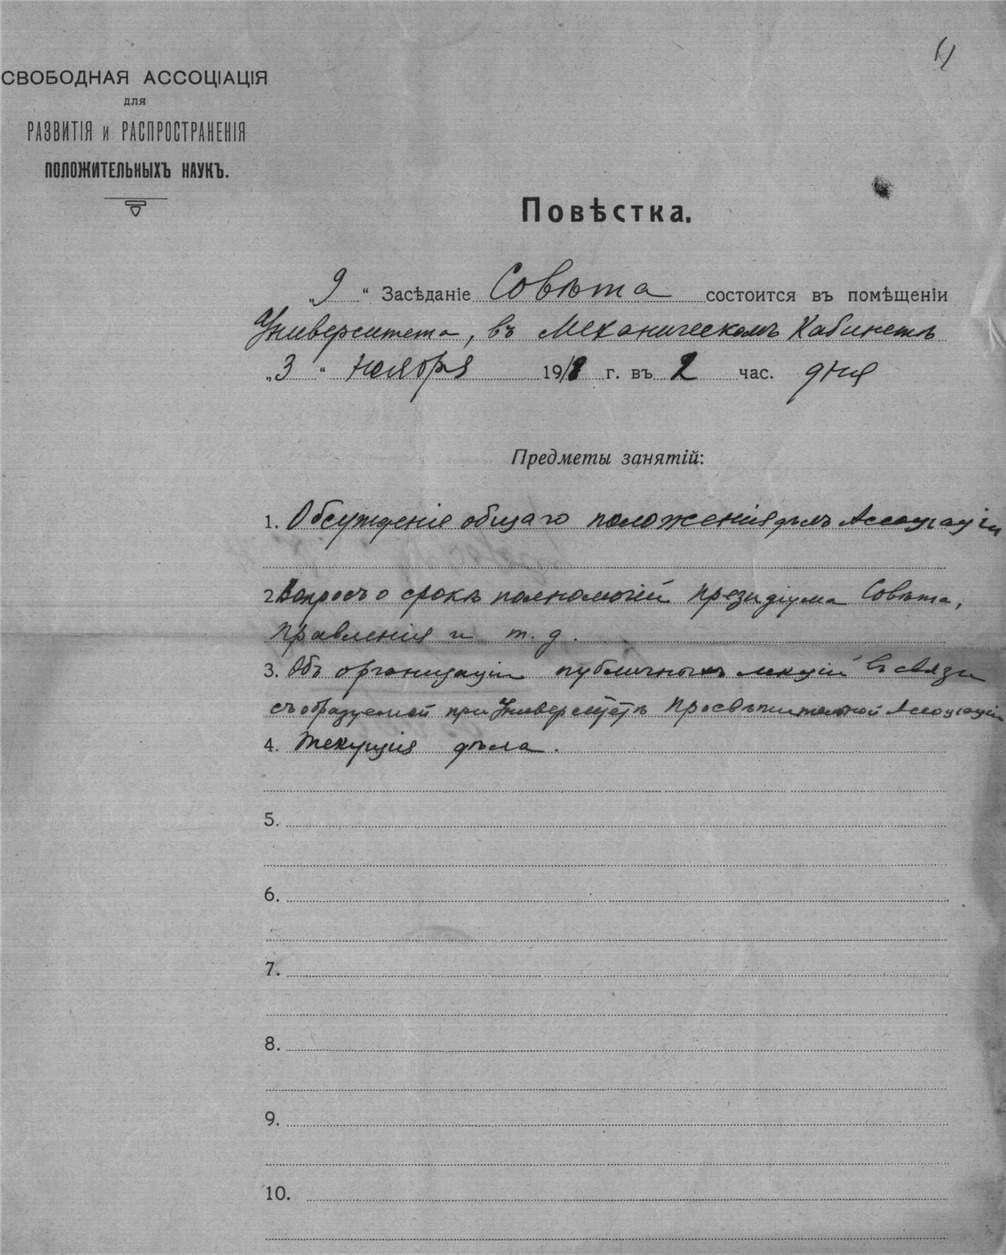 СВОБОДНАЯ АССОЦІАЦІЯ
для
РАЗВИТІЯ и РАСПРОСТРАНЕНІЯ
ПОЛОЖИТЕЛЬНЫХЪ НАУКЪ.
Повѣстка.
„9“ Засѣданіе Совѣта состоится въ помѣщеніи
Университета, въ Механическомъ Кабинетѣ
„3“ ноября 1918 г. въ 2 час. дня
Предметы занятій:
1. Обсужденіе общаго положенія дѣлъ Ассоціаціи
2. Вопросъ о срокѣ полномочій президіума Совѣта,
Правленія и т. д.
3. Объ организаціи публичныхъ лекцій въ связи
съ образуемой при Университетѣ Просвѣтительной Ассоціаціи
4. Текущія дѣла.
5.
6.
7.
8.
9.
10.